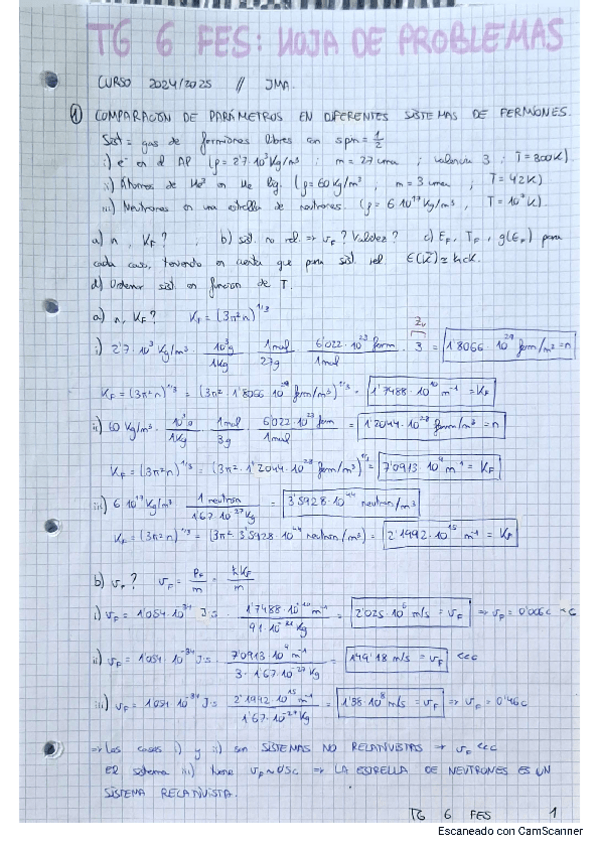 TG 6 FES: HOJA DE PROBLEMAS
CURSO 2024/2025 // JMA.
① COMPARACIÓN DE PARÁMETROS EN DIFERENTES SISTEMAS DE FERMIONES.
Sist = gas de fermiones libres con spin = 1/2
i) e⁻ en el Al (ρ = 2'7·10³ Kg/m³ ; m = 27 uma ; valencia 3 ; T = 300K).
ii) Átomos de He³ en He líq. (ρ = 60 Kg/m³ , m = 3 uma ; T = 42K)
iii) Neutrones en una estrella de neutrones. (ρ = 6·10¹⁷ Kg/m³ , T = 10⁸ K).
a) n , K_F ? , b) sist. no rel. ⇒ v_F ? Validez ? c) E_F , T_F , g(E_F) para
cada caso, teniendo en cuenta que para sist. rel. E(k) ≃ ħck.
d) Ordenar sist. en función de T.
a) n, K_F ? K_F = (3π²n)^1/3
i) 2'7·10³ Kg/m³ · 10³g/1Kg · 1mol/27g · 6'022·10²³ ferm/1mol · 3 (Z_v) = 1'8066·10²⁹ ferm/m³ = n
K_F = (3π²n)^1/3 = (3π²·1'8066·10²⁹ ferm/m³)^1/3 = 1'7488·10¹⁰ m⁻¹ = K_F
ii) 60 Kg/m³ · 10³g/1Kg · 1mol/3g · 6'022·10²³ ferm/1mol = 1'2044·10²⁸ ferm/m³ = n
K_F = (3π²n)^1/3 = (3π²·1'2044·10²⁸ ferm/m³)^1/3 = 7'0913·10⁹ m⁻¹ = K_F
iii) 6·10¹⁷ Kg/m³ · 1 neutrón/1'67·10⁻²⁷Kg = 3'5928·10⁴⁴ neutrón/m³
K_F = (3π²n)^1/3 = (3π²·3'5928·10⁴⁴ neutrón/m³) = 2'1992·10¹⁵ m⁻¹ = K_F
b) v_F ? v_F = p_F/m = ħK_F/m
i) v_F = 1'054·10⁻³⁴ J·s · 1'7488·10¹⁰ m⁻¹/9'1·10⁻³¹ Kg = 2'025·10⁶ m/s = v_F ⇒ v_F = 0'006c
ii) v_F = 1'054·10⁻³⁴ J·s · 7'0913·10⁹ m⁻¹/3·1'67·10⁻²⁷ Kg = 149'18 m/s = v_F <<c
iii) v_F = 1'054·10⁻³⁴ J·s · 2'1992·10¹⁵ m⁻¹/1'67·10⁻²⁷ Kg = 1'38·10⁸ m/s = v_F ⇒ v_F = 0'46c
⇒ Los casos i) y ii) son SISTEMAS NO RELATIVISTAS ⇒ v_F <<c
El sistema iii) tiene v_F ~ 0'5c ⇒ LA ESTRELLA DE NEUTRONES ES UN
SISTEMA RELATIVISTA.
TG 6 FES 1
Escaneado con CamScanner